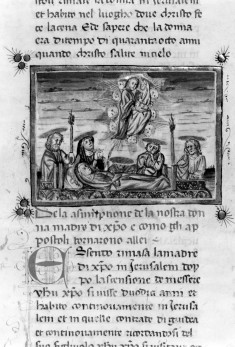 habito nel luogho dove christo fe
ce la cena E de sapere che la donna
era di tempo di quaranta octo anni
quando christo salite in cielo
De la asumptione de la nostra don
na madre di xpo e como gli ap
postoli tornarono allei
Essendo rimasa la madre
di xpo in Jerusalem dop
po la sensione de messere
yhu xpo si visse duodici anni et
habito continouamente in Jerusa
lem et in quelle contrate di giudea
et continouamente ricordandosi del